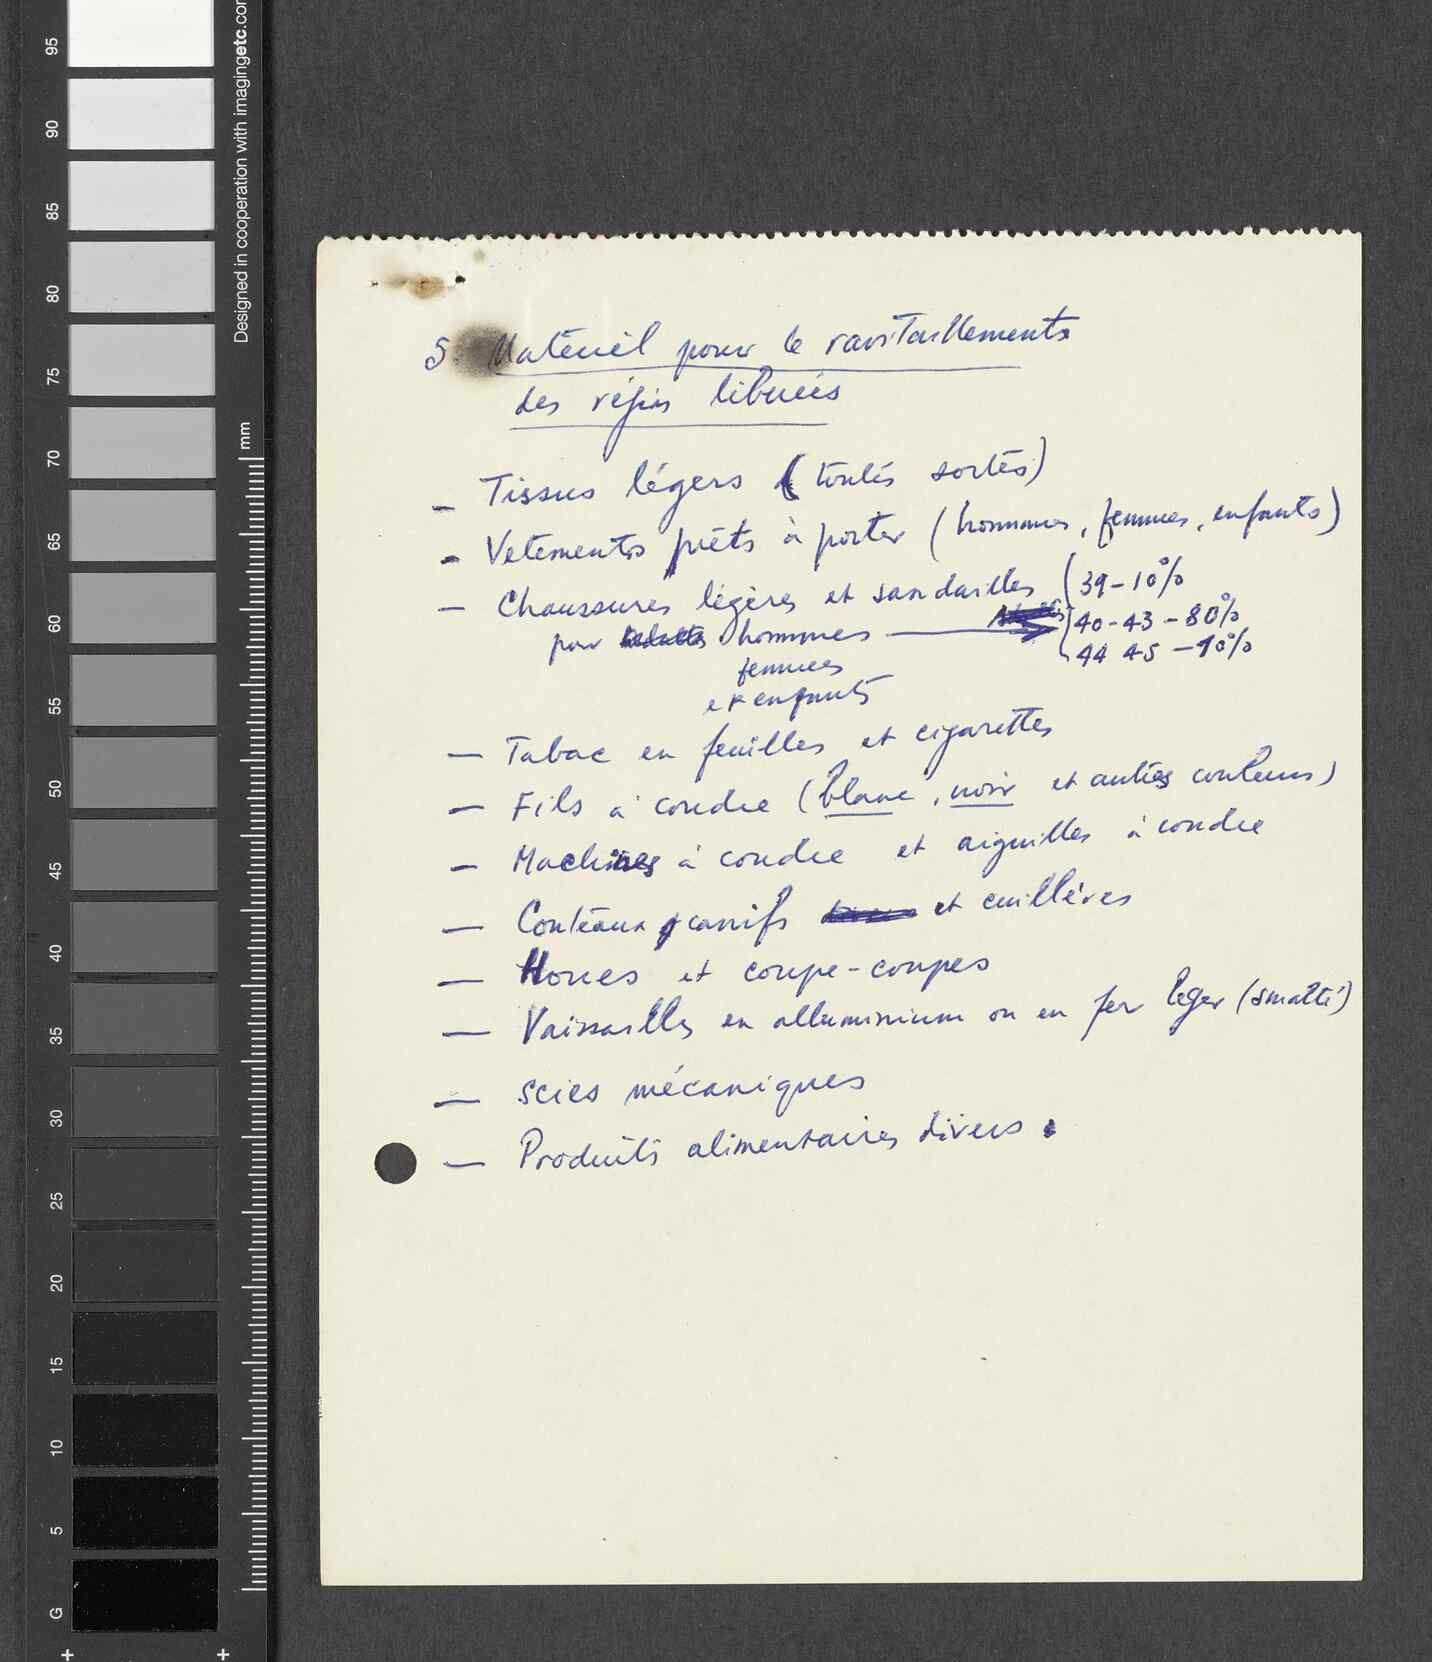 5 Matériel pour le ravitaillements
des régios libérées
- Tissus légers (toutes sortes)
- Vetements prêts à porter (hommes, femmes, enfants)
- Chaussures légères et sandailles (39-10%
pour hommes 40-43-80%
femmes 44 45-10%
et enfants
- Tabac en feuilles et cigarettes
- Fils à coudre (blanc, noir et autres couleurs)
- Machines à coudre et aiguilles à coudre
- Couteaux, canifs et cuillères
- Houes et coupe-coupes
- Vaissailles en alluminium ou en fer léger (smalté)
- Scies mécaniques
- Produits alimentaires divers.
Designed in cooperation with imagingetc.com
mm
95
90
85
80
75
70
65
60
55
50
45
40
35
30
25
20
15
10
5
G